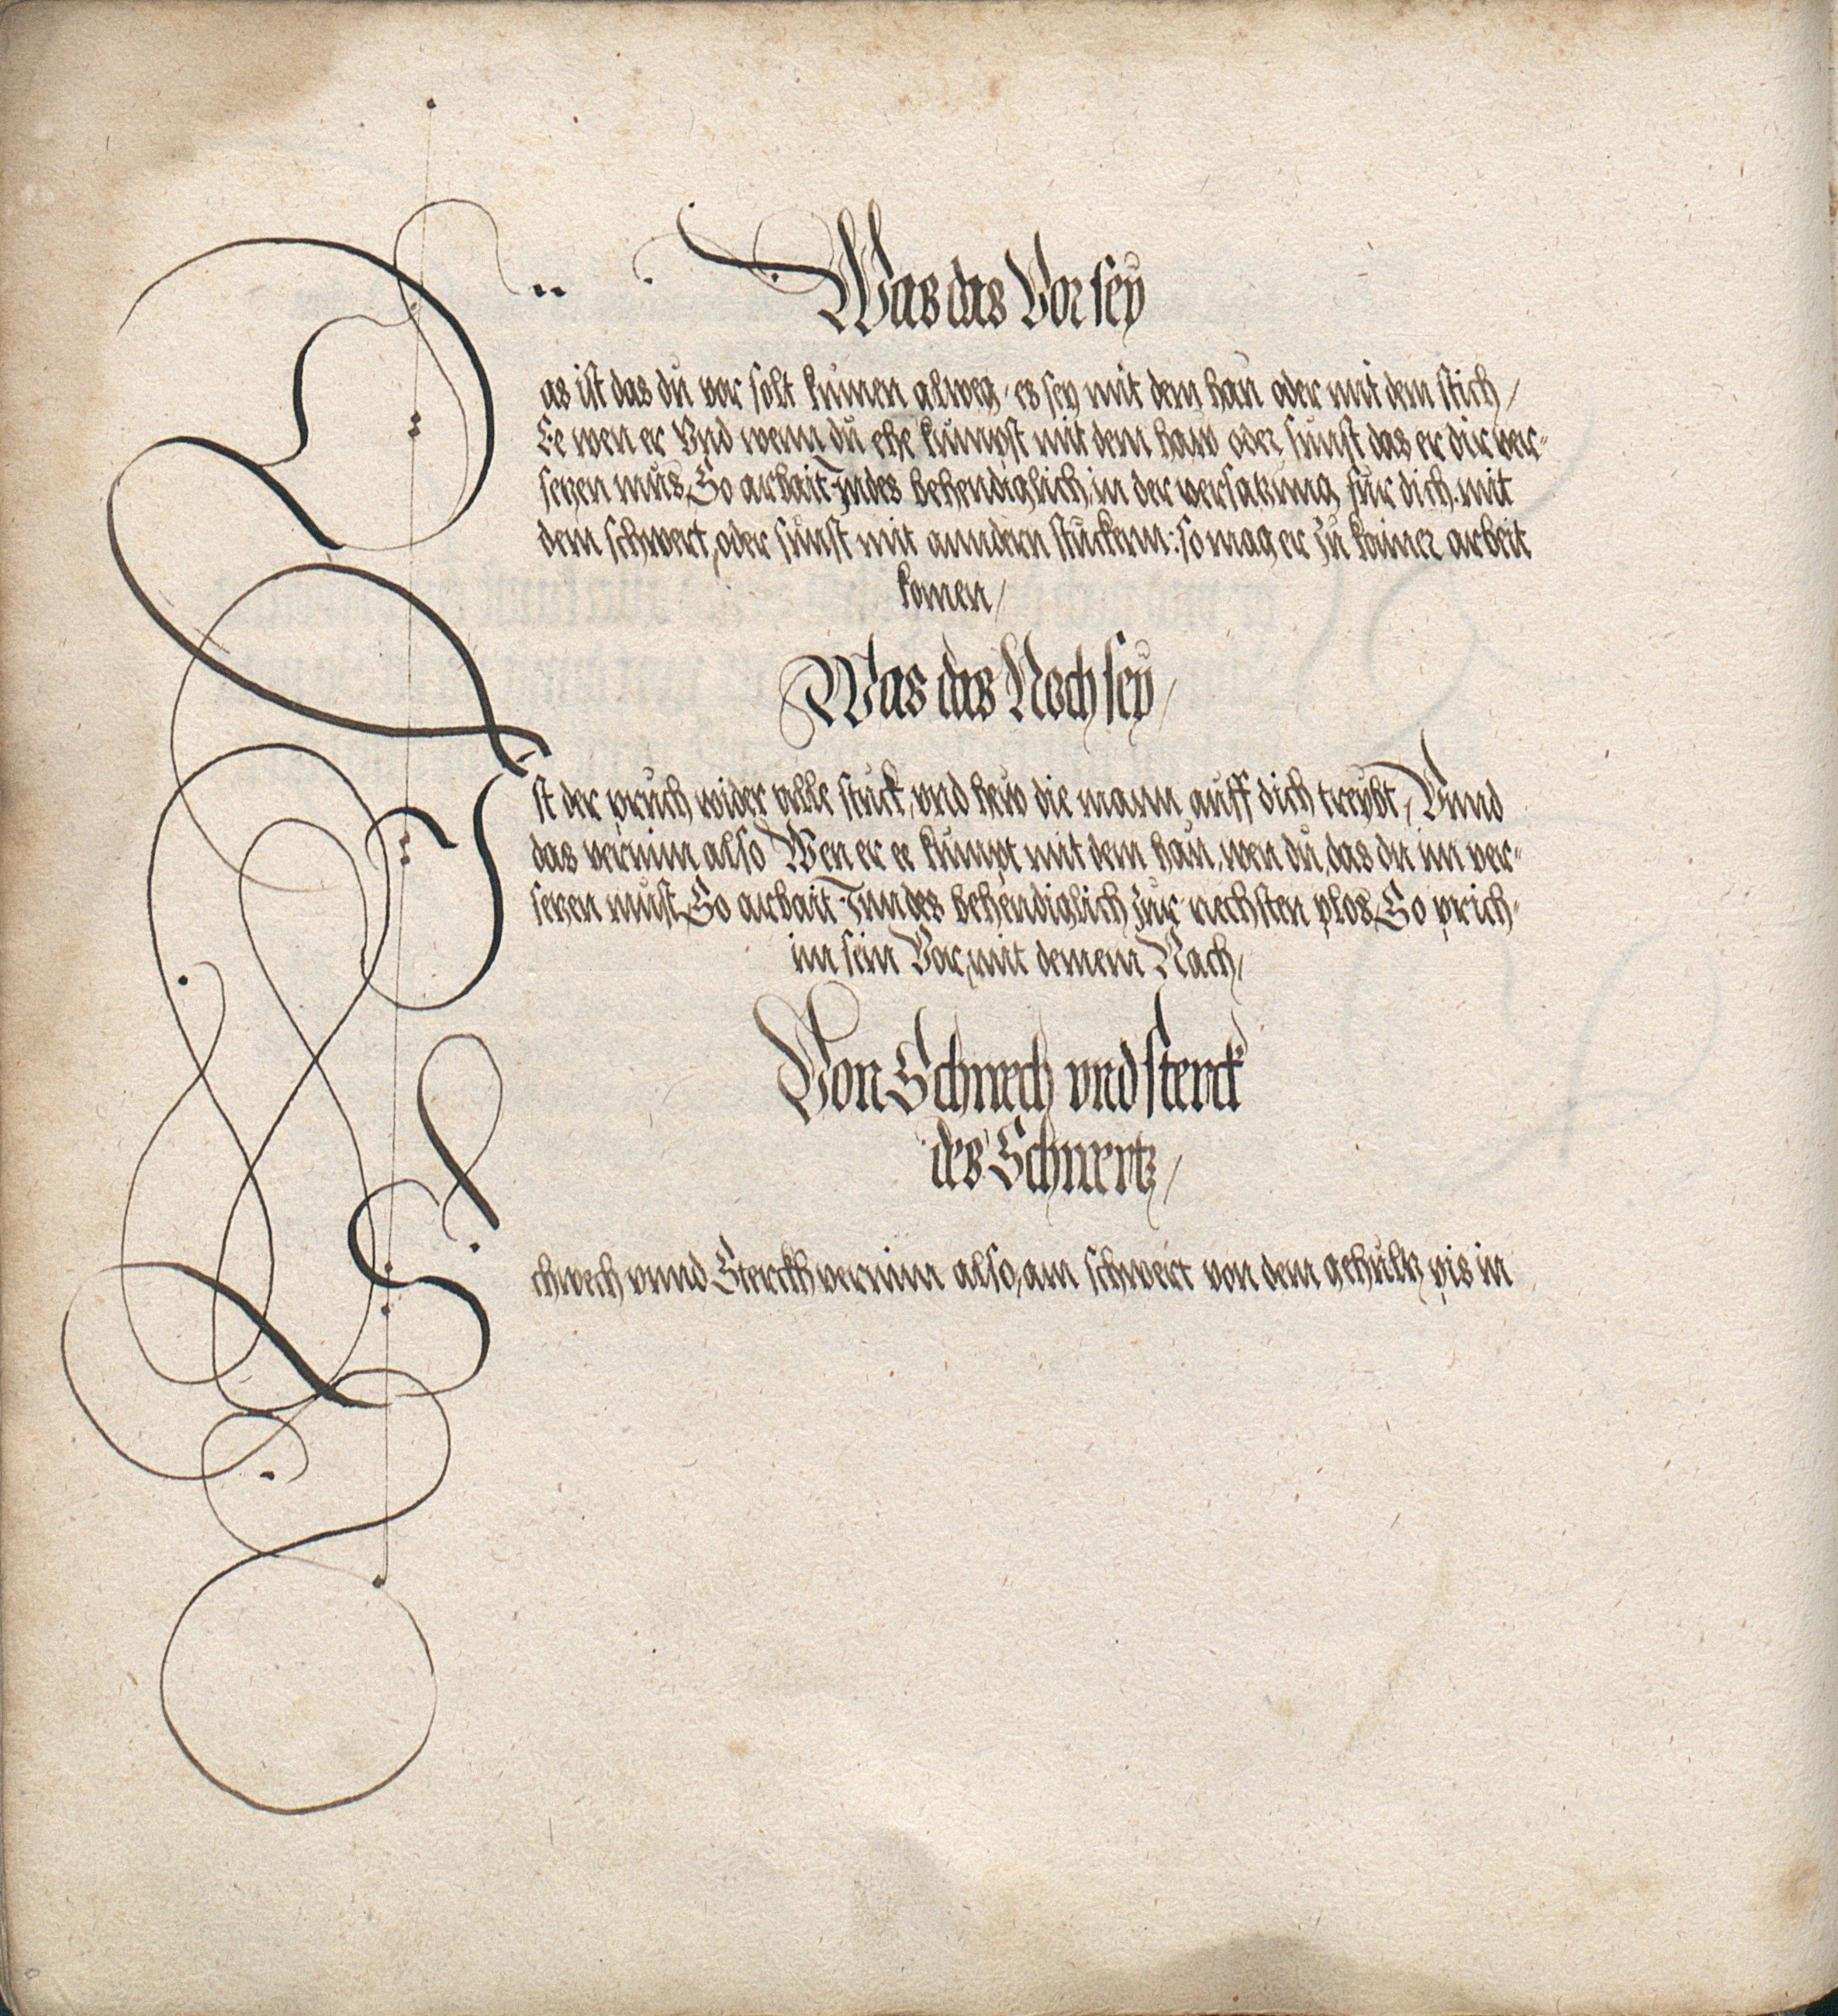 Was das Vor sey
Das ist das du vor solt kumen alweg, es sey mit dem hau oder mit dem stich /
Ee wen er Vnd wenn du ehe kumpst mit dem haw oder sunst das er dir ver=
seczen mus, So arbait Indes behendiglich, in der versaczung fur dich. mit
dem schwert, oder sunst mit anndern stuckenn: so mag er zu kainer arbeit
komen /
Was das Noch sey /
Ist der pruch wider alle stuck, vnd hew die mann auff dich treybt, Vnnd
das vernim also Wen er ee kumpt mit dem hau, wen du, das du im ver=
seczen must, So arbait Inndes behendiglich zur nechsten plos, So prich=
im sein Vor, mit deinem Nach /
Von Schwech vnd sterck
des Schwertz /
Schwech vnnd Sterckh vernim also, am schwert von dem gehultz pis in